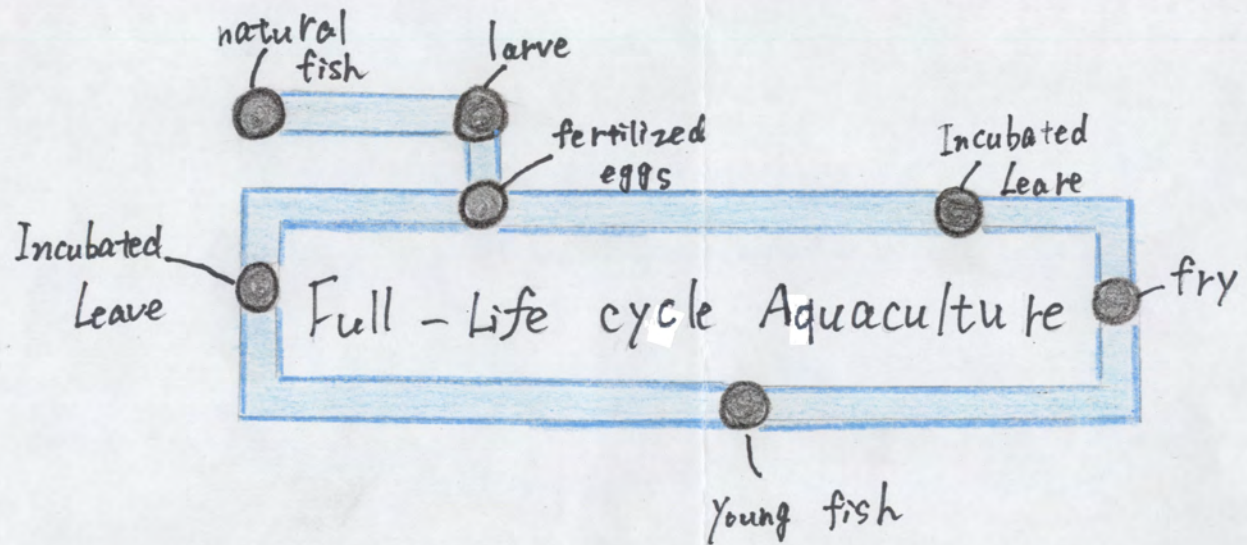 natural
fish
larve
fertilized
eggs
Incubated
Leare
Incubated
Leave
Full - Life cycle Aquaculture
fry
young fish